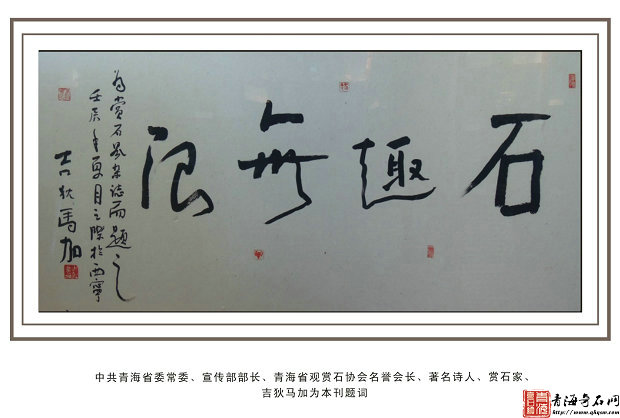 石趣無限
为赏石风杂誌而題之
壬辰年夏月之際於西寧
吉狄馬加
中共青海省委常委、宣传部部长、青海省观赏石协会名誉会长、著名诗人、赏石家、
吉狄马加为本刊题词
青海奇石网
www.qhqsw.com